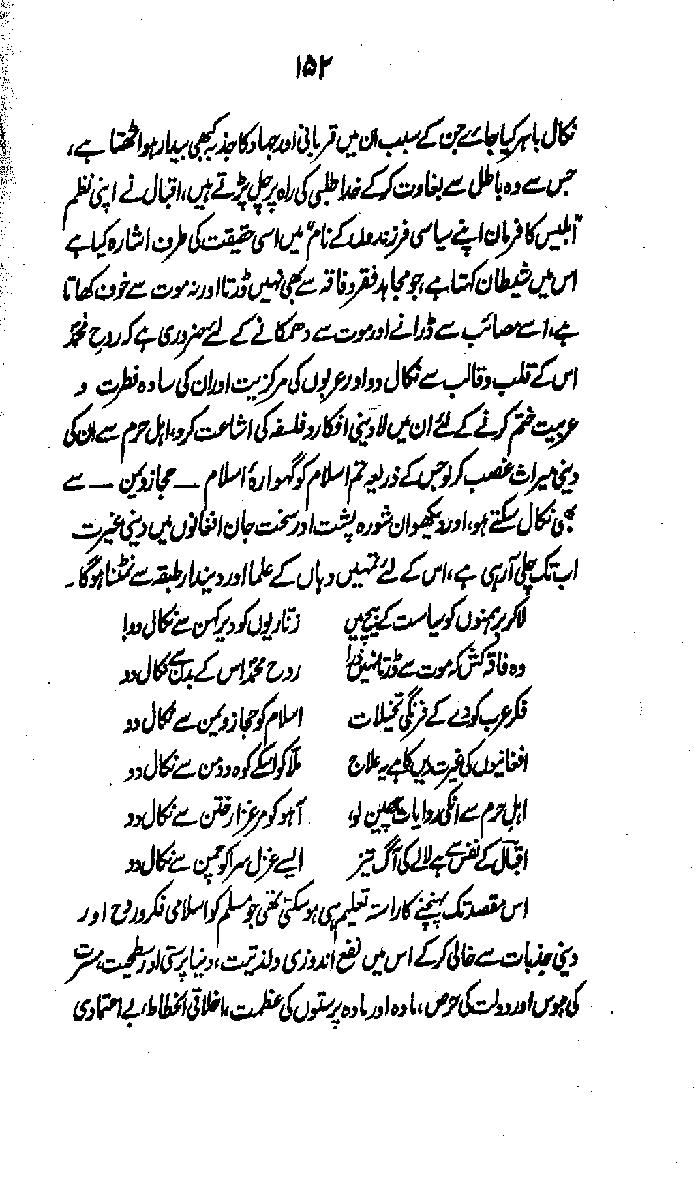 ۱۵۲
نکال باہر کیا جائے جن کے سبب ان میں قربانی اور جہاد کا جذبہ کبھی بیدار ہو اٹھتا ہے،
جس سے وہ باطل سے بغاوت کرکے خدا طلبی کی راہ پر چل پڑتے ہیں، اقبال نے اپنی نظم
"ابلیس کا فرمان اپنے سیاسی فرزندوں کے نام" میں اسی حقیقت کی طرف اشارہ کیا ہے
اس میں شیطان کہتا ہے، جو مجاہد فقر و فاقہ سے بھی نہیں ڈرتا اور نہ موت سے خوف کھاتا
ہے، اسے مصائب سے ڈرانے اور موت سے دھمکانے کے لئے ضروری ہے کہ روح محمدؐ
اس کے قلب و قالب سے نکال دو اور عربوں کی مرکزیت اور ان کی سادہ فطرت و
عربیت ختم کرنے کے لئے ان میں لادینی افکار و فلسفہ کی اشاعت کرو، اہل حرم سے ان کی
دینی میراث غصب کر لو جس کے ذریعہ تم اسلام کو گہوارۂ اسلام — حجاز و یمن — سے
بھی نکال سکتے ہو، اور دیکھو ان شورہ پشت اور سخت جان افغانوں میں دینی غیرت
اب تک چلی آرہی ہے، اس کے لئے تمہیں وہاں کے علما اور دیندار طبقہ سے نمٹنا ہوگا۔
لاکر برہمنوں کو سیاست کے پیچ میں زناریوں کو دیر کہن سے نکال دو!
وہ فاقہ کش کہ موت سے ڈرتا نہیں ذرا روح محمدؐ اس کے بدن سے نکال دو
فکر عرب کو دے کے فرنگی تخیلات اسلام کو حجاز و یمن سے نکال دو
افغانیوں کی غیرت دیں کا ہے یہ علاج ملا کو اسکے کوہ و دمن سے نکال دو
اہل حرم سے انکی روایات چھین لو آہو کو مرغزار ختن سے نکال دو
اقبالؔ کے نفس سے ہے لالے کی آگ تیز ایسے غزل سرا کو چمن سے نکال دو
اس مقصد تک پہنچنے کا راستہ تعلیم ہی ہو سکتی تھی جو مسلم کو اسلامی فکر و روح اور
دینی جذبات سے خالی کرکے اس میں نفع اندوزی و لذتیت، دنیا پرستی اور سطحیت، مسرت
کی ہوس اور دولت کی حرص، مادہ اور مادہ پرستوں کی عظمت، اخلاقی انحطاط، بے اعتمادی